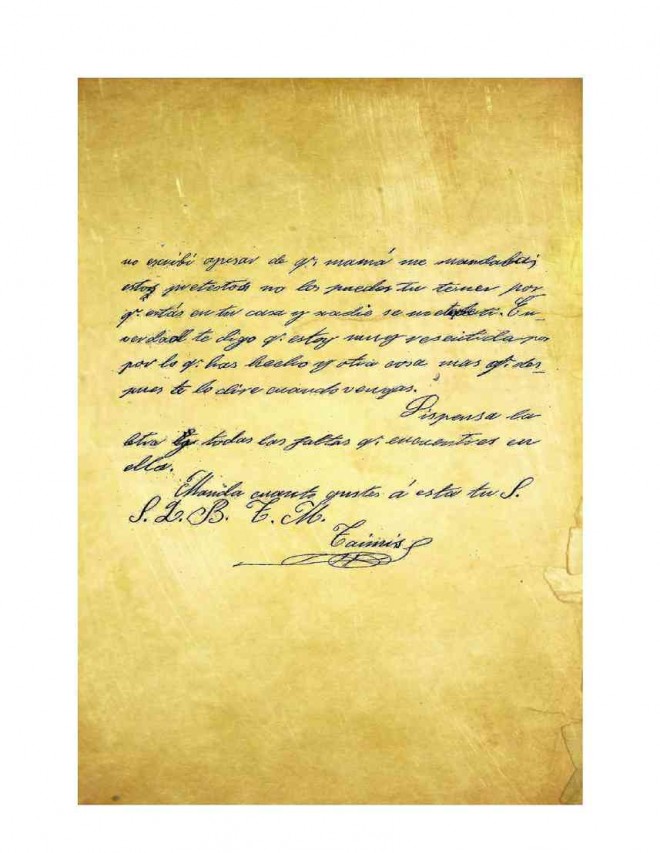 no escribí apesar de q.e mamá me mandaba;
estos pretestos no los puedes tu tener por
q.e estás en tu casa y nadie se mete en ti. En
verdad te digo q.e estoy muy resentida po
por lo q.e has hecho y otra cosa mas q.e des-
pues te lo dire cuando vengas.
Dispensa la
letra y todas las faltas q.e encuentres en
ella.
Manda cuanto gustes á esta tu S.
S. Q. B. T. M.
Taimis